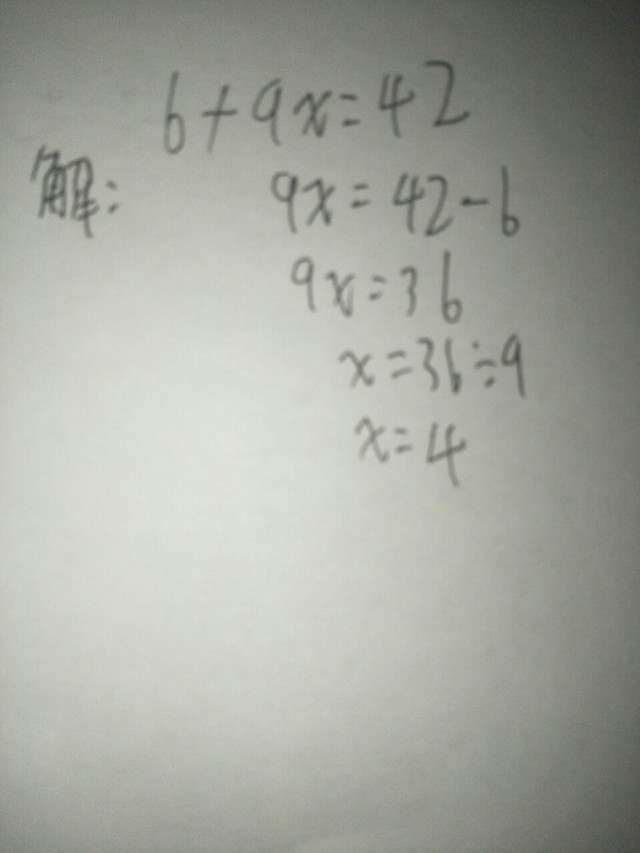 6+9x=42
解: 9x=42-6
9x=36
x=36÷9
x=4